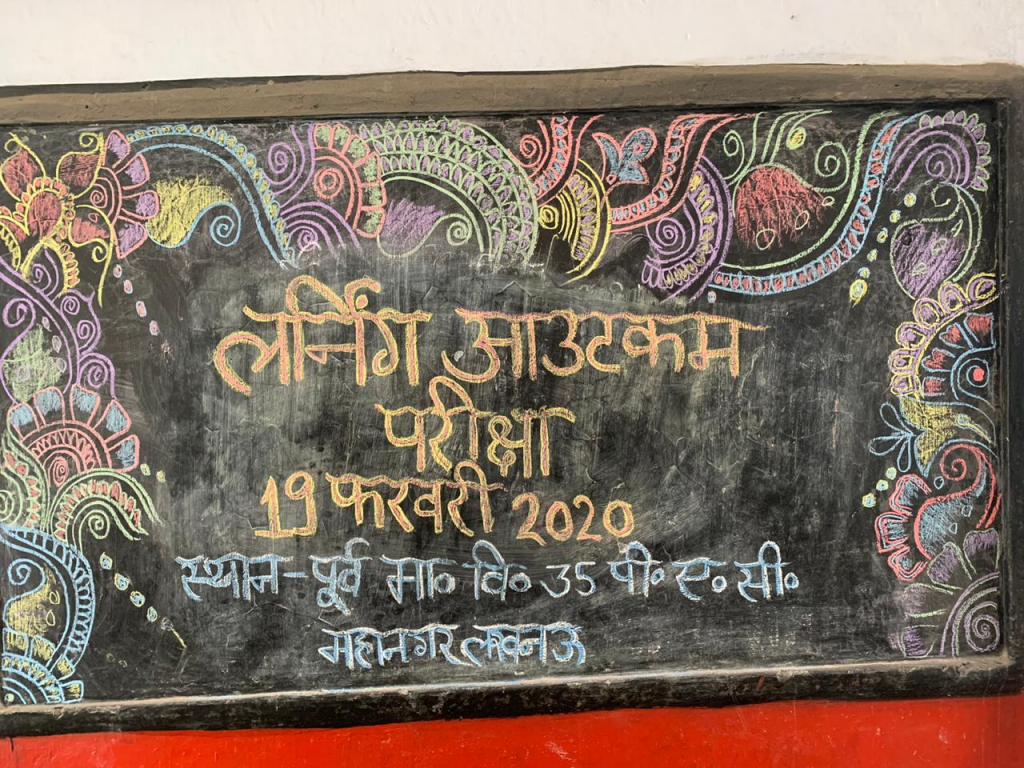 लर्निंग आउटकम
परीक्षा
19 फरवरी 2020
स्थान-पूर्व मा॰ वि॰ 35 पी॰ ए॰ सी॰
महानगर लखनऊ